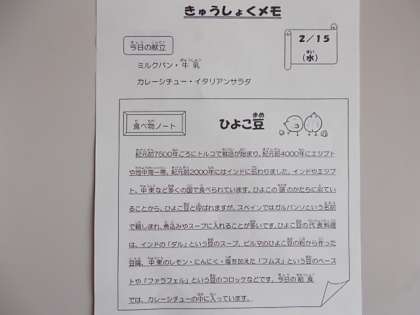 きゅうしょくメモ
今日の献立
2/15
(水)
ミルクパン・牛乳
カレーシチュー・イタリアンサラダ
食べ物ノート
ひよこ豆
紀元前7500年ごろにトルコで栽培が始まり、紀元前4000年にエジプト
や地中海一帯、紀元前2000年にはインドに伝わりました。インドやエジプ
ト、中東など多くの国で食べられています。ひよこの頭のかたちに似てい
ることから、ひよこ豆と呼ばれますが、スペインではガルバンソという名前
で親しまれ、煮込みやスープに入れることが多いです。ひよこ豆の代表料理
は、インドの「ダル」という豆のスープ、ビルマのひよこ豆の粉から作った
豆腐、中東のレモン・にんにく・塩を加えた「フムス」という豆のペース
トや「ファラフェル」という豆のコロッケなどです。今日の給食
では、カレーシチューの中に入っています。